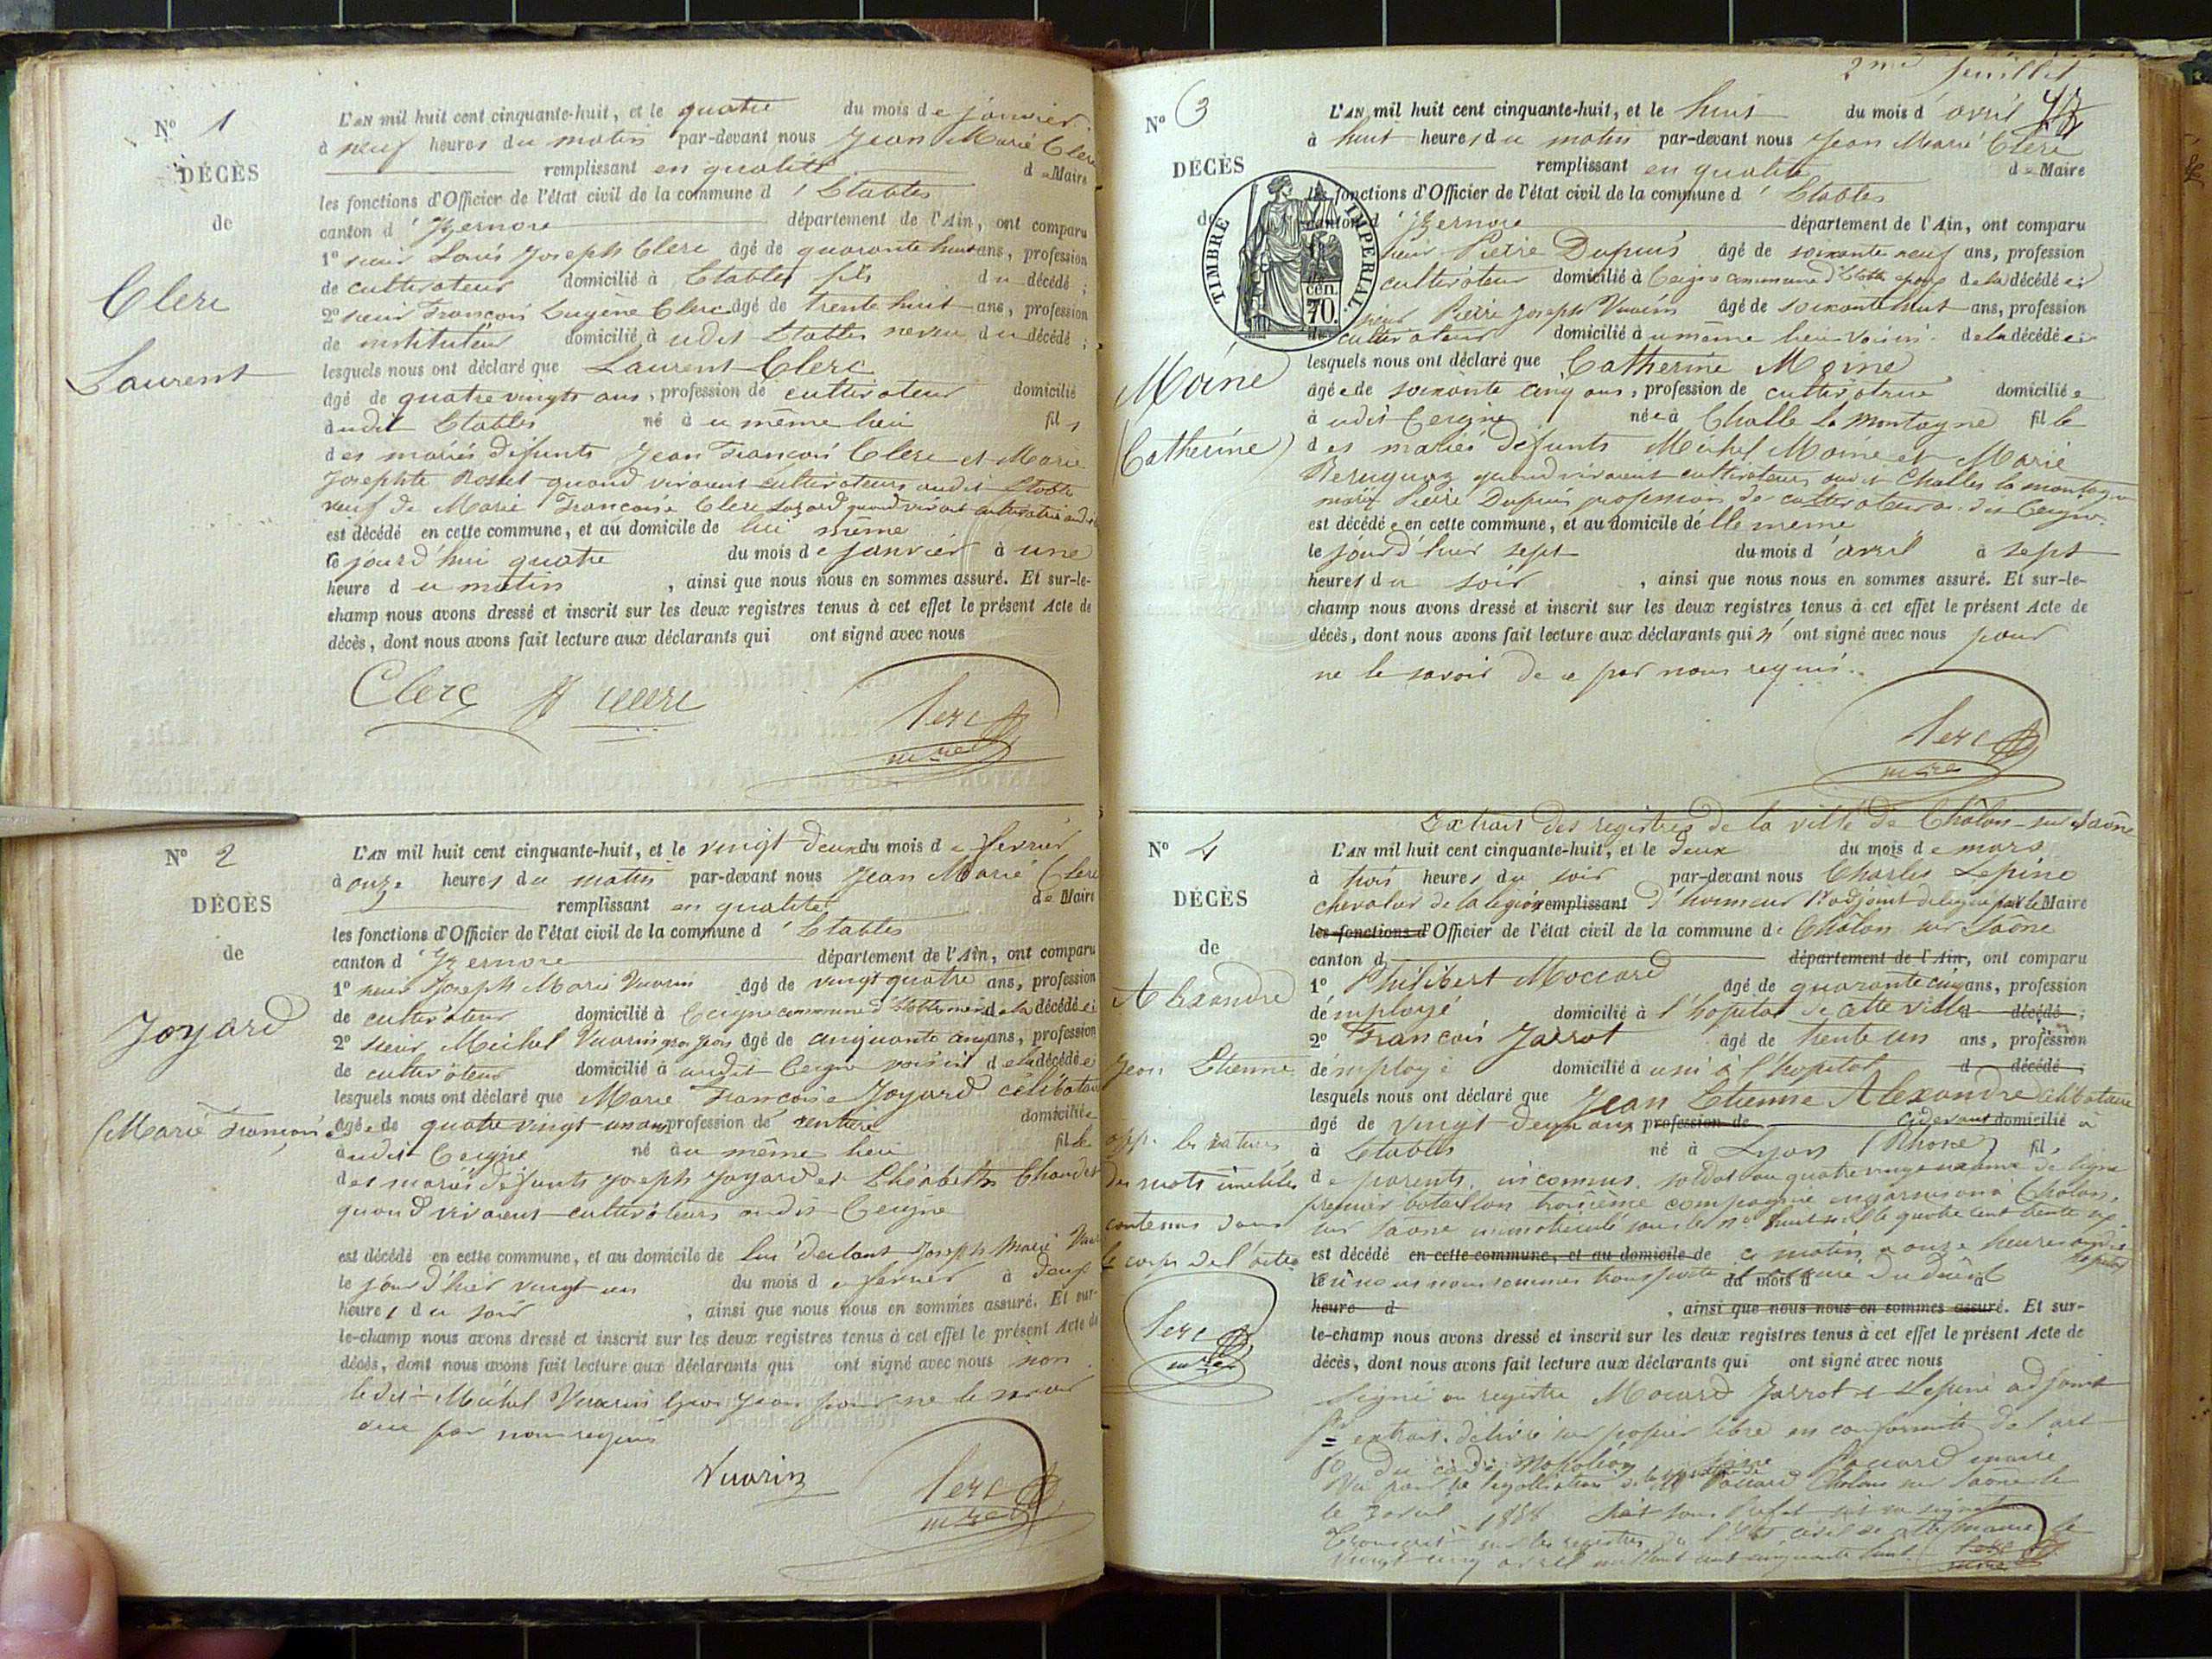 N° 1
DÉCÈS
de
Clerc
Laurent
L'AN mil huit cent cinquante-huit, et le quatre du mois de janvier
à neuf heures du matin par-devant nous Jean Marie Clerc
remplissant en qualité de Maire
les fonctions d'Officier de l'état civil de la commune d'Etables
canton d'Izernore département de l'Ain, ont comparu
1° sieur Louis Joseph Clerc âgé de quarante huit ans, profession
de cultivateur domicilié à Etables fils du décédé ;
2° sieur François Eugène Clerc âgé de trente huit ans, profession
de instituteur domicilié à udit Etables neveu du décédé ;
lesquels nous ont déclaré que Laurent Clerc
âgé de quatre vingts ans, profession de cultivateur domicilié
audit Etables né à u même lieu fils
des mariés défunts Jean François Clerc et Marie
Josephte Rosset quand vivaient cultivateurs audit Etable
veuf de Marie Françoise Clerc quand vivait cultivatrice
est décédé en cette commune, et au domicile de lui même
le jourd'hui quatre du mois de janvier à une
heure du matin, ainsi que nous nous en sommes assuré. Et sur-le-
champ nous avons dressé et inscrit sur les deux registres tenus à cet effet le présent Acte de
décès, dont nous avons fait lecture aux déclarants qui ont signé avec nous
Clerc Clerc
Clerc
mre
N° 2
DÉCÈS
de
Joyard
(Marie Françoise
L'AN mil huit cent cinquante-huit, et le vingt deux du mois de fevrier
à onze heures du matin par-devant nous Jean Marie Clerc
remplissant en qualité de Maire
les fonctions d'Officier de l'état civil de la commune d'Etables
canton d'Izernore département de l'Ain, ont comparu
1° sieur Joseph Marie Vuarin âgé de vingt quatre ans, profession
de cultivateur domicilié à Ceigne commune d'Etables de la décédée
2° sieur Michel Vuarin gros jean âgé de cinquante cinq ans, profession
de cultivateur domicilié à audit Ceigne voisin de la décédée
lesquels nous ont déclaré que Marie Françoise Joyard célibataire
âgée de quatre vingt un ans profession de rentière domiciliée
audit Ceigne né au même lieu fille
des mariés défunts Joseph Joyard et Chandet
quand vivaient cultivateurs audit Ceigne
est décédé en cette commune, et au domicile de lui déclarant Joseph Marie Vuarin
le jour d'hier vingt un du mois de fevrier à deux
heures du soir, ainsi que nous nous en sommes assuré. Et sur-
le-champ nous avons dressé et inscrit sur les deux registres tenus à cet effet le présent Acte de
décès, dont nous avons fait lecture aux déclarants qui ont signé avec nous non
ledit Michel Vuarin Gros Jean pour ne le savoir
par nous requis
Vuarin
Clerc
mre
2me feuillet
N° 3
DÉCÈS
de
TIMBRE IMPÉRIAL
cen.
70.
Moine
(Catherine)
L'AN mil huit cent cinquante-huit, et le huit du mois d'avril
à huit heures du matin par-devant nous Jean Marie Clerc
remplissant en qualité de Maire
les fonctions d'Officier de l'état civil de la commune d'Etables
canton d'Izernore département de l'Ain, ont comparu
sieur Pierre Dupuis âgé de soixante neuf ans, profession
cultivateur domicilié à Ceigne commune d'Etable époux de la décédée
sieur Pierre Joseph Vuarin âgé de soixante huit ans, profession
de cultivateur domicilié à u même lieu voisin de la décédée
lesquels nous ont déclaré que Catherine Moine
âgée de soixante cinq ans, profession de cultivatrice domiciliée
à udit Ceigne née à Challe la Montagne fille
des mariés défunts Michel Moine et Marie
Beruguoz quand vivaient cultivateurs audit Challes la montagne
Pierre Dupuis profession de cultivateur Ceigne
est décédée en cette commune, et au domicile d'elle même
le jour d'hier sept du mois d'avril à sept
heures du soir, ainsi que nous nous en sommes assuré. Et sur-le-
champ nous avons dressé et inscrit sur les deux registres tenus à cet effet le présent Acte de
décès, dont nous avons fait lecture aux déclarants qui n'ont signé avec nous pour
ne le savoir de ce par nous requis.
Clerc
mre
Extrait des registres de la ville de Châlon-sur-Saône
N° 4
DÉCÈS
de
Alexandre
Jean Etienne
app. les ratures
des mots inutiles
contenus dans
le corps de l'acte
Clerc
mre
L'AN mil huit cent cinquante-huit, et le deux du mois de mars
à trois heures du soir par-devant nous Charles Lepine
chevalier de la légion remplissant d'honneur 1er adjoint délégué par le Maire
les fonctions d'Officier de l'état civil de la commune de Châlon sur Saône
canton d département de l'Ain, ont comparu
1° Philibert Moccard âgé de quarante cinq ans, profession
d'employé domicilié à l'hopital de cette ville d décédé ;
2° François Jarrot âgé de trente un ans, profession
d'employé domicilié à l'hopital d décédé ;
lesquels nous ont déclaré que Jean Etienne Alexandre célibataire
âgé de vingt deux ans profession de cidevant domicilié à
à Etables né à Lyon (Rhone) fils
de parents inconnus. soldat au de ligne
premier bataillon troisième compagnie en garnison à Chalon,
sur Saône immatriculé sous le n° huit mille quatre cent trente
est décédé en cette commune, et au domicile de ce matin à onze heures audit hopital
le où nous nous sommes transporté et assuré du décès du mois d à
heure d, ainsi que nous nous en sommes assuré. Et sur-
le-champ nous avons dressé et inscrit sur les deux registres tenus à cet effet le présent Acte de
décès, dont nous avons fait lecture aux déclarants qui ont signé avec nous
signé au registre Mocard Jarrot et Lepine adjoint
Pr extrait délivré sur papier libre en conformité de l'art
80 du code Napoléon
Vu pour la légalisation Chalons sur Saone le
le 7 avril 1858
Transcrit sur les registres de l'état civil de la mairie le
vingt cinq avril mil huit cent cinquante huit. Clerc
maire